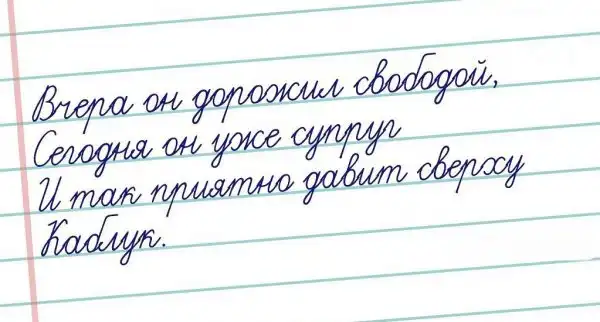 Вчера он дорожил свободой,
Сегодня он уже супруг
И так приятно давит сверху
Каблук.